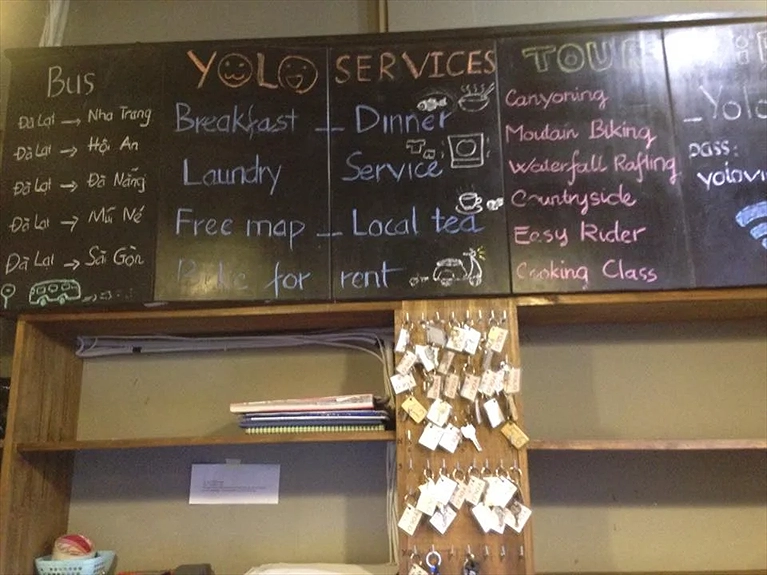 Bus
Đà Lạt → Nha Trang
Đà Lạt → Hội An
Đà Lạt → Đà Nẵng
Đà Lạt → Mũi Né
Đà Lạt → Sài Gòn
YOLO SERVICES
Breakfast _ Dinner
Laundry Service
Free map _ Local tea
Bike for rent
TOUR
Canyoning
Moutain Biking
Waterfall Rafting
Countryside
Easy Rider
Cooking Class
_Yolo
pass: